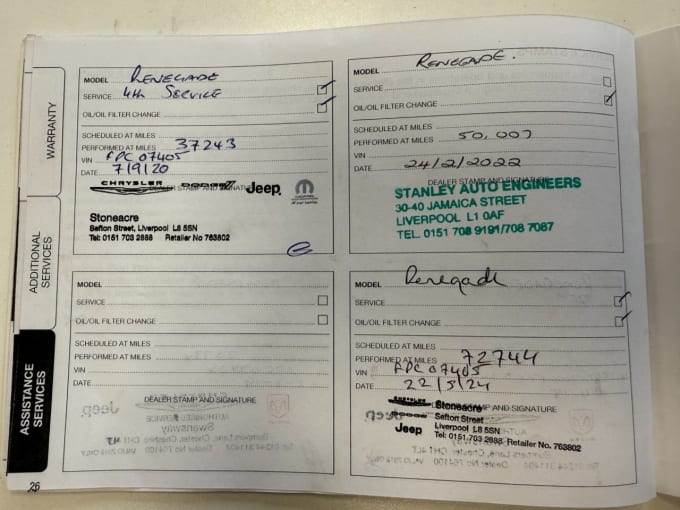 WARRANTY
ADDITIONAL
SERVICES
ASSISTANCE
SERVICES
26
MODEL RENEGADE
SERVICE 4th SERVICE
OIL/OIL FILTER CHANGE
SCHEDULED AT MILES
PERFORMED AT MILES 37243
VIN FPC 07405
DATE 7/9/20
DEALER STAMP AND SIGNATURE
CHRYSLER DODGE Jeep
Stoneacre
Sefton Street, Liverpool L8 5SN
Tel: 0151 703 2888 Retailer No 763802
MODEL RENEGADE.
SERVICE
OIL/OIL FILTER CHANGE
SCHEDULED AT MILES
PERFORMED AT MILES 50,007
VIN
DATE 24/2/2022
DEALER STAMP AND SIGNATURE
STANLEY AUTO ENGINEERS
30-40 JAMAICA STREET
LIVERPOOL L1 0AF
TEL. 0151 708 9191/708 7087
MODEL
SERVICE
OIL/OIL FILTER CHANGE
SCHEDULED AT MILES
PERFORMED AT MILES
VIN
DATE
DEALER STAMP AND SIGNATURE
MODEL Renegade
SERVICE
OIL/OIL FILTER CHANGE
SCHEDULED AT MILES
PERFORMED AT MILES 72744
VIN FPC 07405
DATE 22/5/24
DEALER STAMP AND SIGNATURE
Stoneacre
Sefton Street
Jeep Liverpool L8 5SN
Tel: 0151 703 2888 Retailer No. 763802